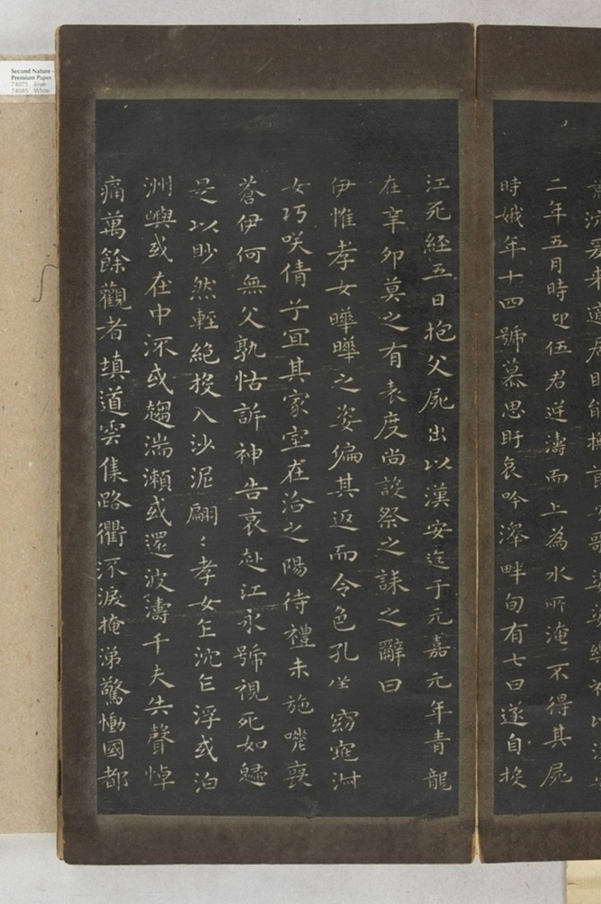 二年五月時迎伍君逆濤而上為水所淹不得其屍
時娥年十四號慕思盱哀吟澤畔旬有七日遂自投
江死經五日抱父屍出以漢安迄于元嘉元年青龍
在辛卯莫之有表度尚設祭之誄之辭曰
伊惟孝女曄曄之姿偏其返而令色孔儀窈窕淑
女巧咲倩兮宜其家室在洽之陽待禮未施嗟喪
蒼伊何無父孰怙訴神告哀赴江永號視死如歸
是以眇然輕絕投入沙泥翩〻孝女乍沈乍浮或泊
洲嶼或在中流或趨湍瀨或還波濤千夫失聲悼
痛萬餘觀者填道雲集路衢流淚掩涕驚慟國都
Second Nature
Premium Paper
74075 Blue
74085 White